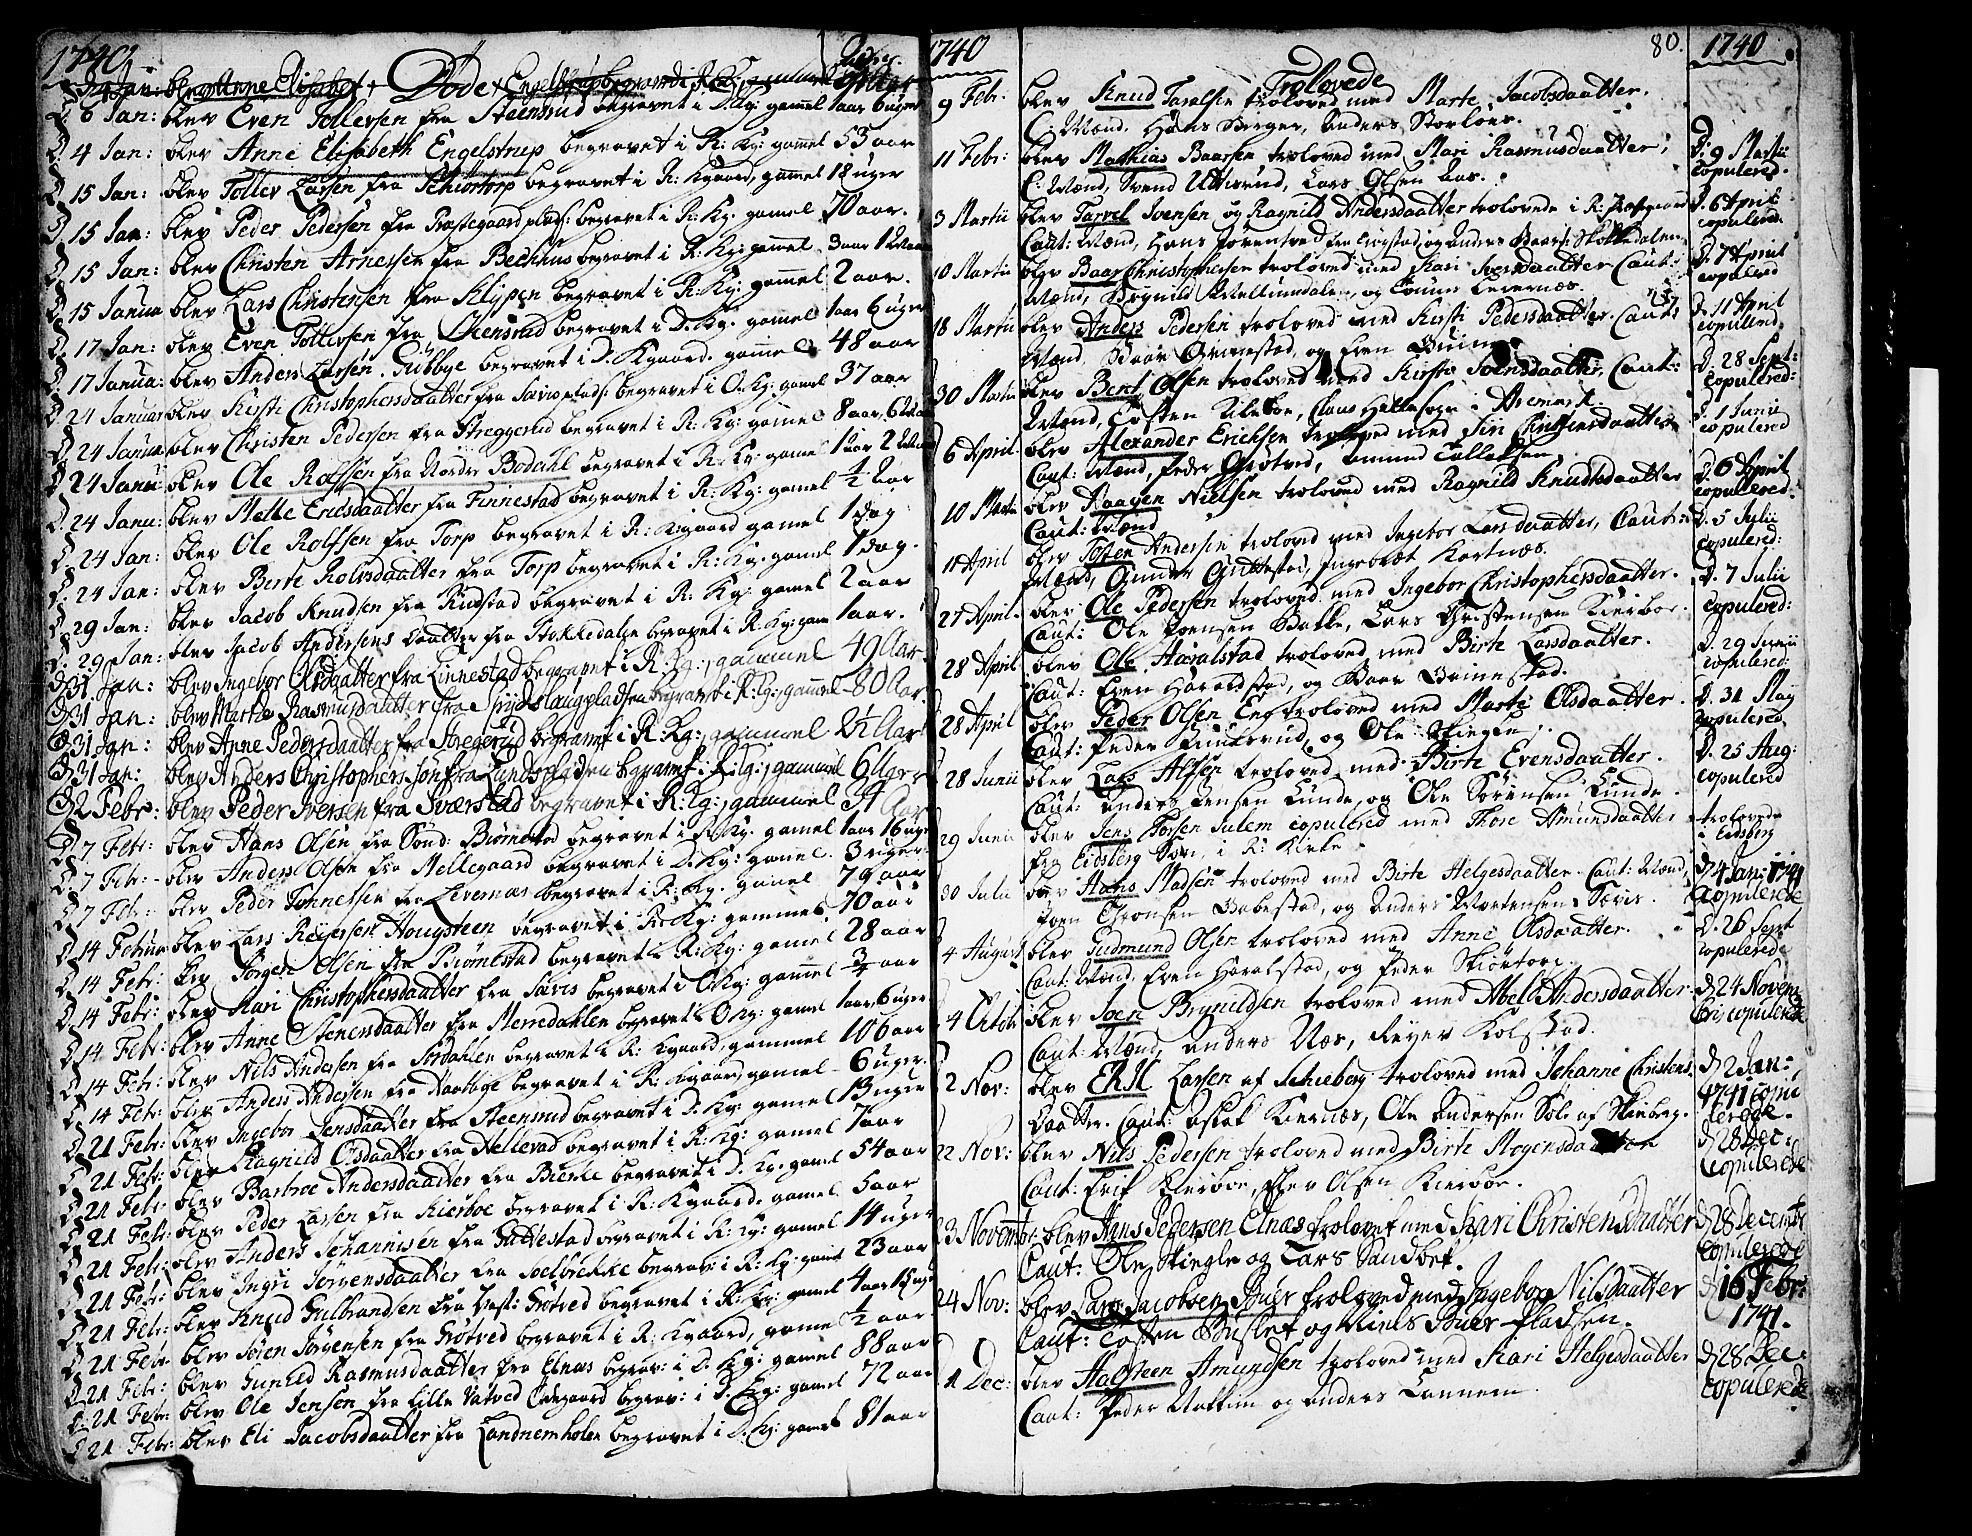 1740.
Døde
D. 6 Jan: blev Even Tollersen fra Steensrud begravet i D. Kg: gammel 1 aar 6 uger
D. 4 Jan: blev Anne Elisabeth Engelstrup begravet i R: Kg: gammel 53 aar
D. 15 Jan: blev Tollev Larsen fra Schiørtorp begravet i R: Kgaard, gammel 18 uger
D. 15 Jan: blev Peder Pedersen fra Præstegaard plads: begravet i R: Kg: gamel 70 aar.
D. 15 Jan: blev Christen Arnessen fra Bechhus begravet i R: Kg: gammel 3 aar
D. 15 Janua blev Lars Christensen fra Klypen begravet i R: Kg: gammel 2 aar.
D. 17 Jan: blev Even Tollersen fra Steensrud begravet i D. Kg. gamel 1 aar 6 uger
D. 17 Janua: blev Anders Larsen Gubbye begravet i D. Kgaard. gammel 48 aar
D. 24 Januar blev Kirsti Christophersdaatter fra Sævis plads: begravet i O. Kg: gamel 37 aar
D. 24 Janua blev Christen Pedersen fra Streggerud begravet i R: Kg: gammel 8 aar, 6
D. 24 Janu blev Ole Rolfsen fra Nordre Bodahl begravet i R: Kg: gamel 1 aar 2
D. 24 Janu: blev Mette Ericsdaatter fra Finnestad begravet i R: Kg: gamel 1/2 aar
D. 24 Jan: blev Ole Rolfssen fra Torp begravet i R: Kgaard gamel 1 dag
D. 24 Jan: blev Birte Rolvsdaatter fra Torp begravet i R: Kg. gamel 1 dag.
D. 29 Jan: blev Jacob Knudsen fra Rudstad begravet i R: Kg: gamel 2 aar
D. 29 Jan: blev Jacob Andersens Daatter fra Stokkedalen begravet i R. Kg: gam 1 aar.
D 31 Jan: blev Ingebor Olsdaatter fra Linnestad begravet i R: Kg:, gammel 49 Aar.
D 31 Jan: blev Marthe Rasmusdaatter fra Spydslaugpladsen begravet i R: Kg:, gammel 80 Aar
D 31 Jan: blev Anne Pedersdaatter fra Stregerud begravet i R: Kg:, gammel 2 1/2 Aar
D 31 Jan: blev Anders Christophers: søn fra Lundspladsen begravet i R: Kg:, gammel 6 Aar
D 2 Febr: blev Peder Iversen fra Sværstad begravet i R: Kg:, gammel
D 7 Febr: blev Hans Olsen fra Sønd: Biørnstad begravet i R: Kg. gamel 1 aar 16 uger
D. 7 Feb: blev Anders Olsen fra Mellegaard begravet i D. Kg: gamel. 3 uger
D. 7 Feb: blev Peder Tønnessen fra Levernæs begravet i R: Kg. gamel 79 aar
D. 14 Februa blev Lars Reiersen Hougsteen begravet i R: Kg: gammel 70 aar
D. 14 Feb: blev Jørgen Olsen fra Biørnestad begravet i R: Kg: gamel 28 aar
D. 14 Febr: blev Kari Christophersdaatter fra Sævis begravet i O. Kg: gammel 3/4 aar
D. 14 Febr: blev Anne Stenersdaatter fra Merredahlen begravet i O. Kg: gamel 1 aar, 6 uger
D. 14 Febr: blev Nils Andersen fra Sordahlen begravet i R: Kgaard, gammel 106 aar
D. 14 Febr: blev Anders Andersen fra Haabbye begravet i R: Kgaard, gamel 6 uger.
D. 21 Febr: blev Ingebor Jensdaatter fra Steensrud begravet i D. Kg: gamel 13 uger
D. 21 Febr: blev Ragnild Olsdaatter fra Hellerad begravet i R: Kg: gamel 7 aar
D. 21 Febr blev Barbroe Andersdaatter fra Bierke begravet i D. Kg: gamel 54 aar
D. 21 Febr: blev Peder Larsen fra Kierboe begravet i R: Kgaard, gamel 5 aar
D. 21 Febr: blev Anders Johannisen fra Guttestad begravet i R: Kg: gamel 14 uger
D. 21 Febr: blev Ingri Jørgensdaatter fra begravet i R: Kg: gamel 23 aar
D. 21 Febr: blev Knud Gulbrandsen fra Vest: Grøtved begravet i R: Kg: gamel 4 aar 15 uger
D. 21 Febr: blev Søren Jørgensen fra Grøtved begravet i R: Kgaard, gamel 1/2 aar
D. 21 Febr: blev Gunild Rasmusdaatter fra Elnæs begrav: i D. Kg: gamel 88 aar
D. 21 Febr: blev Ole Jensøn fra Lille Vatved Ødegaard begrav: i D. Kg: gamel 72 aar
D. 21 Febr: blev Eli Jacobsdaatter fra Landnemholen begravet i D. Kg: gamel 81 aar
1740
80.
1740
Trolovede
9 Febr: blev Knud Taralsen troloved med Marte Jacobsdaatter.
C: Mænd, Hans Berger, Anders Storloes.
11 Febr: blev Mathias Baarsen troloved med Mari Rasmusdaatter; D. 9 Martii
C: Mænd, Svend Uttisrud, Lars Olsen Aas. copulered.
3 Martii blev Tarvel Svensen og Ragnild Andersdaatter trolovede i R: Præstegaard D. 6 April
Caut: Mænd, Hans fra og Anders Baars: Stokkedalen copulered.
10 Martii blev Baar Christophersen troloved med Kari Iversdaatter Caut: D. 7 April
Mænd, Brynild Mellumsdalen, og Levernæs. copulered
18 Martii blev Anders Pedersen troloved med Kirsti Pedersdaatter. Caut: D. 11 April
Mænd, Baar Grimestad, og Even copulered.
30 Martii blev Bent Olsen troloved med Kirsti Svensdaatter, Caut: D. 28 Sept:
Mænd, Tosten Kileboe, Claus i Aremark. copulered:
6 April. blev Alexander Erichsen troloved med Siri Christensdaatter D. 1 Junii
Caut: Mænd, Peder Grøtved, Amund Tollefsen. copulered
10 Martii blev Haagen Nielsen troloved med Ragnild Knudsdaatter D. 6 April
Caut: Mænd copulered.
11 April blev Tosten Andersen troloved med Ingebor Larsdaatter, Caut: D. 5 Julii
Mænd, Gunder Guttestad, Ingebræt Kartnæs. copulered:
27 April. blev Ole Pedersen troloved med Ingebor Christophersdaatter. D. 7 Julii
Caut: Ole Svensen Bakke, Lars Christensen Kierboe. copulered:
28 April blev Ole Haralstad troloved med Birte Larsdaatter. D. 29 Junii
Caut: Even Haralstad, og Baar Grimestad. copulered:
28 April blev Peder Olsen Eng troloved med Marte Olsdaatter. D. 31 May
Caut: Peder og Ole Skiegle. copulered.
28 Junii blev Lars Alfsen troloved med Birte Evensdaatter. D. 25 Aug:
Caut: Anders Jensen Lunde, og Ole Sørensen Lunde. copulered
29 Junii blev Jens Torsen Sulem copulered med Thore Amundsdaatter trolovede
fra Eidsberg Sogn, i R: Kirke i Eidsberg
30 Julii blev Hans Madsen troloved med Birte Helgesdaatter. Caut: Mænd, D 4 Jan: 1741
Jørn Babestad, og Anders Mortensen Sævis. copulerede
4 August blev Gudmund Olsen troloved med Anne Olsdaatter. D. 26 Sept
Caut: Mænd, Even Haralstad, og Peder Skiørtorp. copulerede
4 Octob: blev Joen Brynildsen troloved med Abell Andersdaatter D 24 Novem
Caut: Mænd, Anders Næs, Reyer Kolstad. bris copulerede
2 Nov: blev ERIK Larsen af Schieberg troloved med Johanne Christens D 2 Jan:
Daatter. Caut: Aslak Kiernæs, Ole Andersen Solv af Skieberg. 1741 copulerede.
22 Nov: blev Nils Pedersen troloved med Birte Mogensdaatter D 28 Dec:
Caut: Erik Kierboe, Elev Olsen Kierboe. copulerede
23 Novembr: blev Hans Pedersen Elnæs trolovet med Kari Christensdaatter D 28 Decembr
Caut: Ole Skiegle og Lars Sandbek. copulerede
24 Nov: blev Lars Jacobsen Buer troloved med Ingebor Nilsdaatter D 16 Febr:
Caut: Tosten Buslet og Niels Buer pladsen. 1741.
4 Dec: blev Halsteen Amundsen troloved med Kari Helgesdaatter D 28 Dec:
Caut: Peder Vattum og Anders Lannem. copulerede